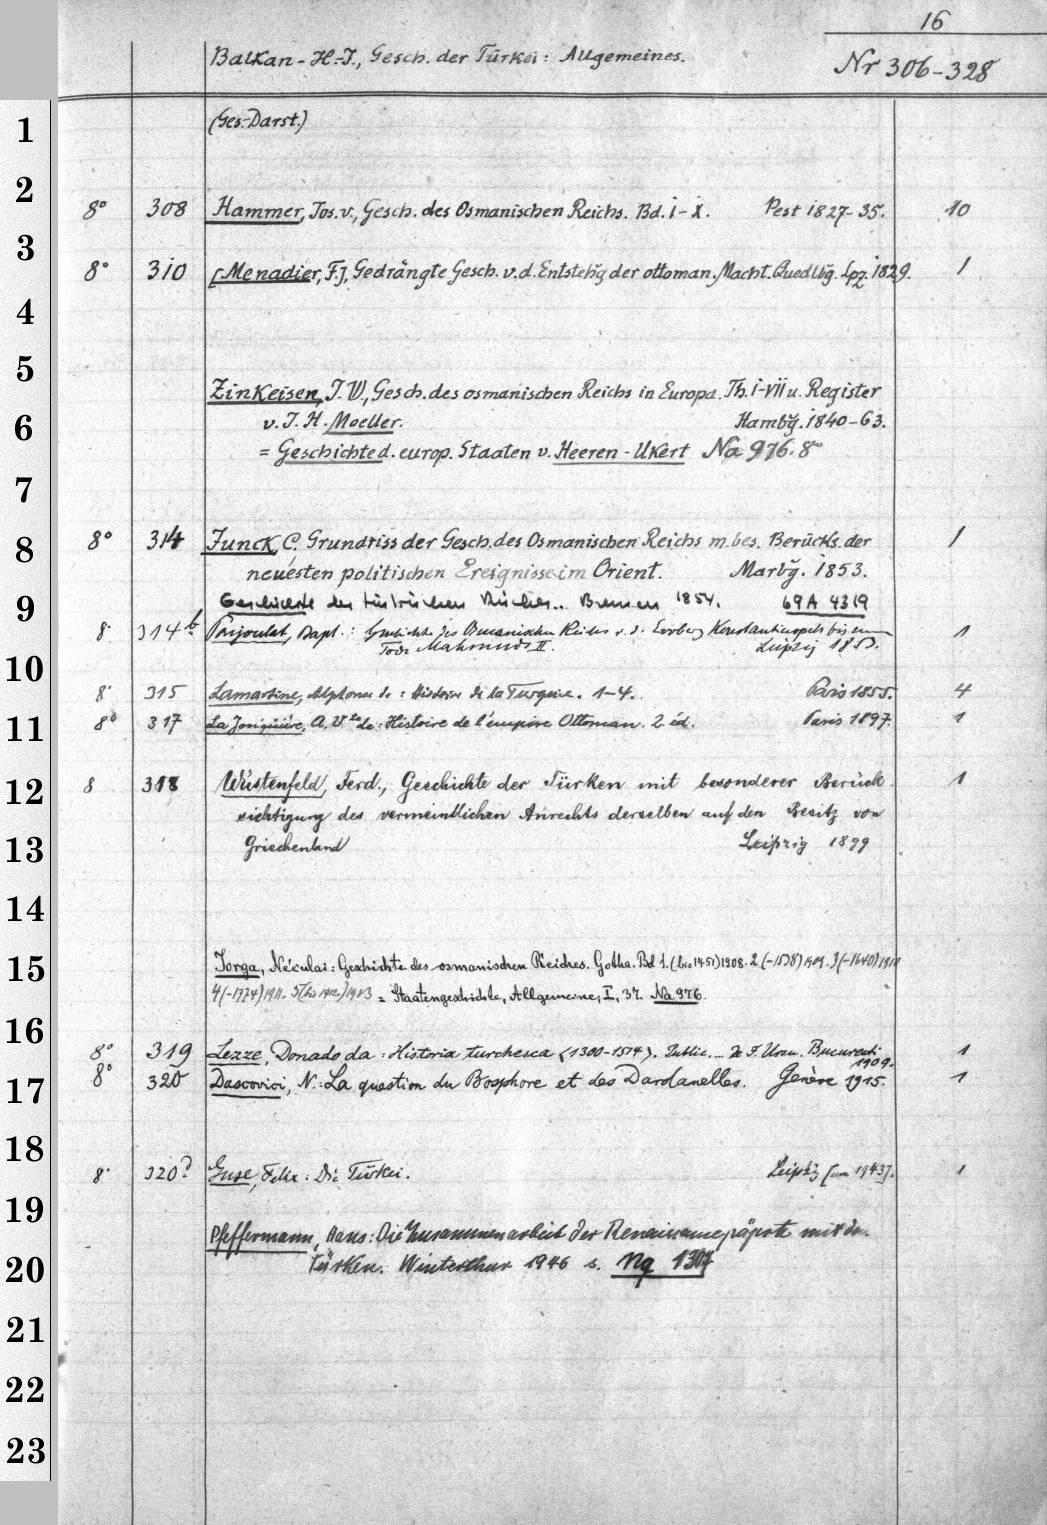 16
Balkan-H.-J., Gesch. der Türkei: Allgemeines.
Nr 306-328
1
(Ges.-Darst.)
2
8° 308 Hammer, Jos. v., Gesch. des Osmanischen Reichs. Bd. I-X. Pest 1827-35. 10
3
8° 310 [Menadier, F.], Gedrängte Gesch. v. d. Entstehg der ottoman. Macht. Quedlbg. Lpz. 1829. 1
4
5
Zinkeisen, J. W., Gesch. des osmanischen Reichs in Europa. Th. I-VII u. Register
6
v. J. H. Moeller. Hambg. 1840-63.
= Geschichte d. europ. Staaten v. Heeren-Ukert Na 976. 8°
7
8
8° 314 Junck, C. Grundriss der Gesch. des Osmanischen Reichs m. bes. Berücks. der 1
neuesten politischen Ereignisse im Orient. Marbg. 1853.
9
Geschichte des türkischen Reiches.. Bremen 1854. 69 A 4319
8° 314b Poujoulat, Bapt.: Geschichte des Osmanischen Reiches v. d. Eroberg Konstantinopels bis zum 1
Tode Mahmuds II. Leipzig 1853.
10
8° 315 Lamartine, Alphonse de: Histoire de la Turquie. 1-4. Paris 1855. 4
11
8° 317 La Jonquière, A. Vte de: Histoire de l'empire Ottoman. 2. éd. Paris 1897. 1
12
8 318 Wüstenfeld, Ferd., Geschichte der Türken mit besonderer Berück- 1
sichtigung des vermeintlichen Anrechts derselben auf den Besitz von
13
Griechenland Leipzig 1899
14
15
Jorga, Neculai: Geschichte des osmanischen Reiches. Gotha. Bd 1. (bis 1451) 1908. 2 (-1538) 1909. 3 (-1640) 1910
4 (-1774) 1911. 5 (bis 1912) 1913 = Staatengeschichte, Allgemeine, I, 37. Na 976.
16
8° 319 Lezze, Donado da: Historia turchesca (1300-1514). Public. De I. Ursu. Bucuresti 1
1909.
17
8° 320 Dascovici, N.: La question du Bosphore et des Dardanelles. Genève 1915. 1
18
8° 320? Guse, Felix: Die Türkei. Leipzig [um 1943]. 1
19
Pfeffermann, Hans: Die Zusammenarbeit der Renaissancepäpste mit den
20
Türken. Winterthur 1946 s. Nq 1307
21
22
23